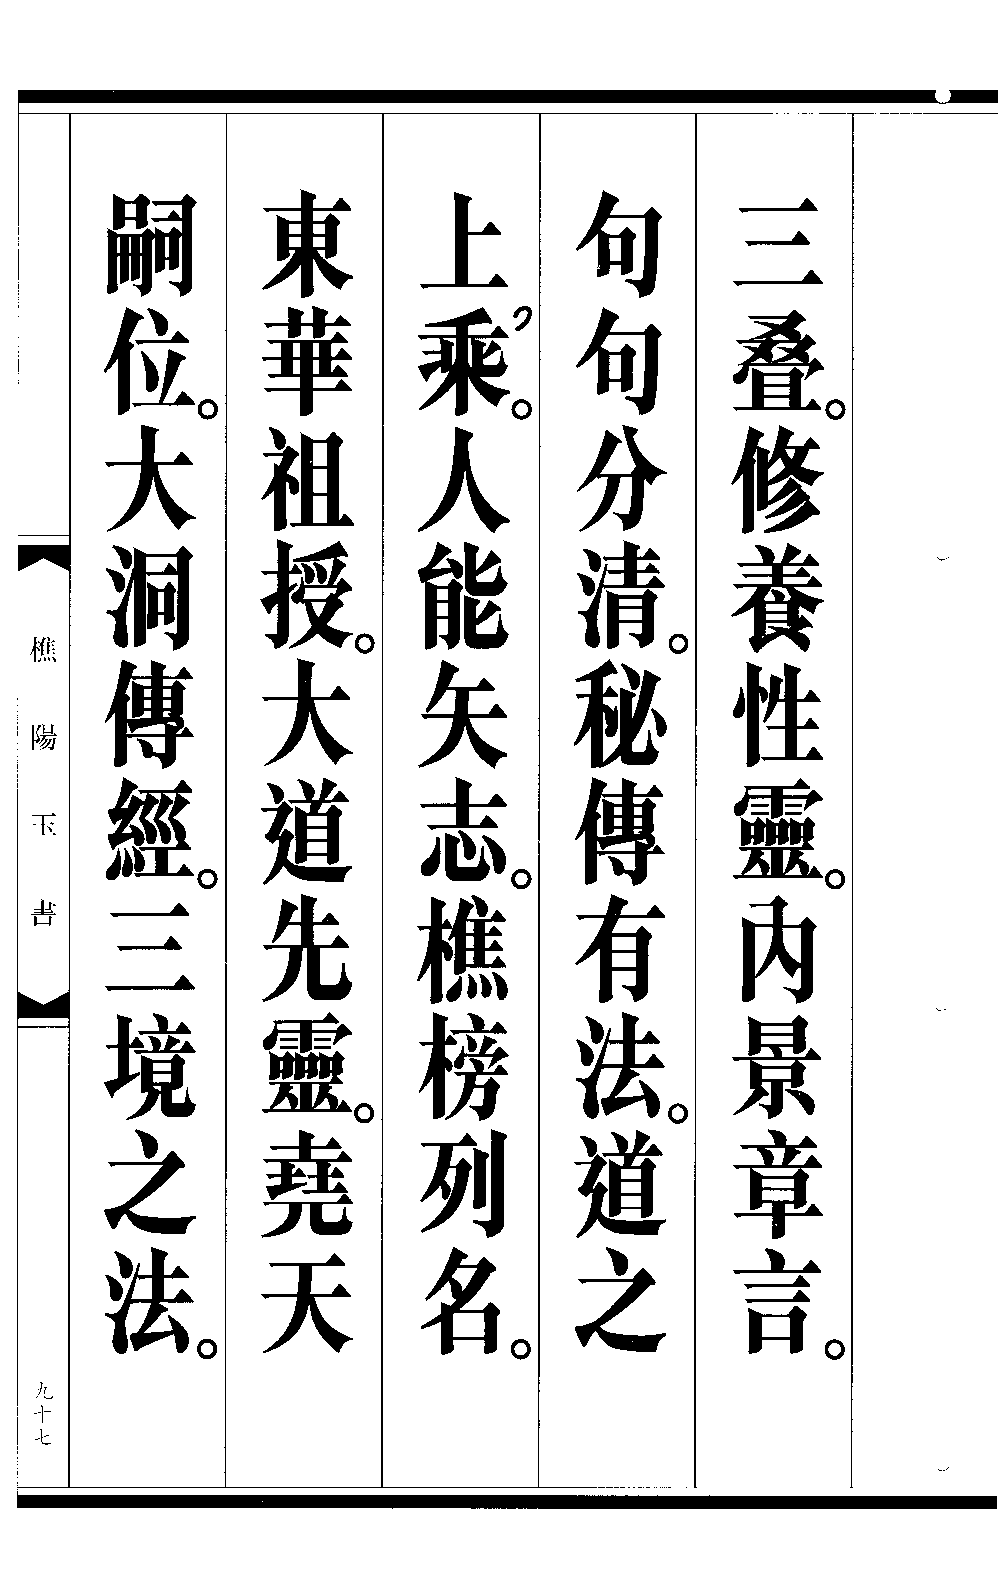 三叠。修養性靈。內景章言。
句句分清。秘傳有法。道之
上乘。人能矢志。樵榜列名。
東華祖授。大道先靈。堯天
嗣位。大洞傳經。三境之法。
樵陽玉書
九十七